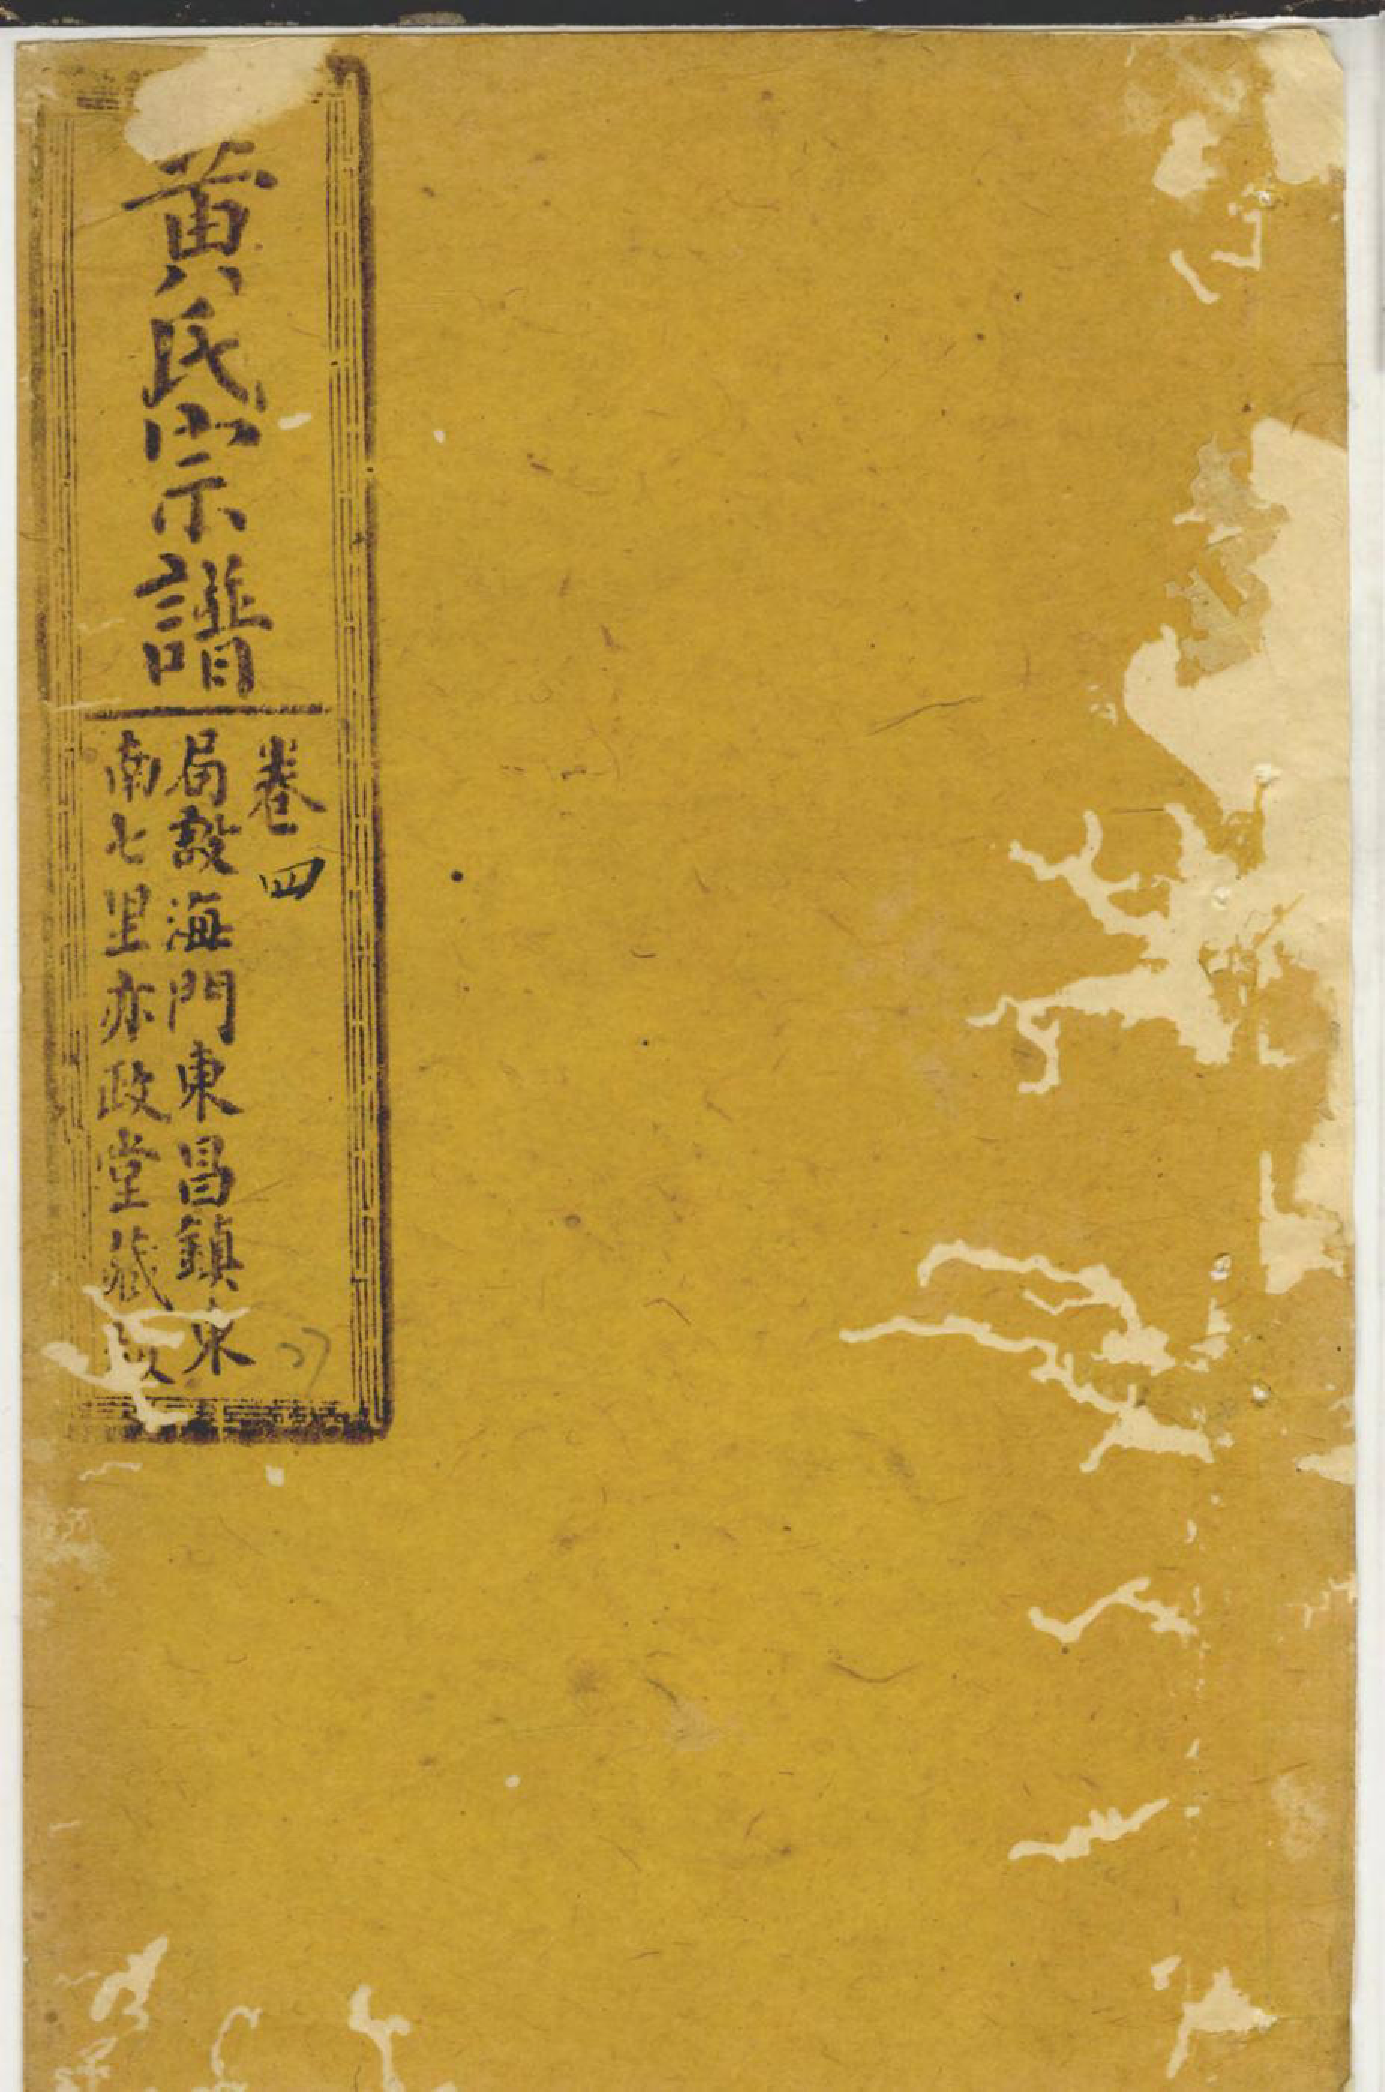 黄氏宗譜
卷四
局設海門東昌鎮東
南七里亦政堂藏